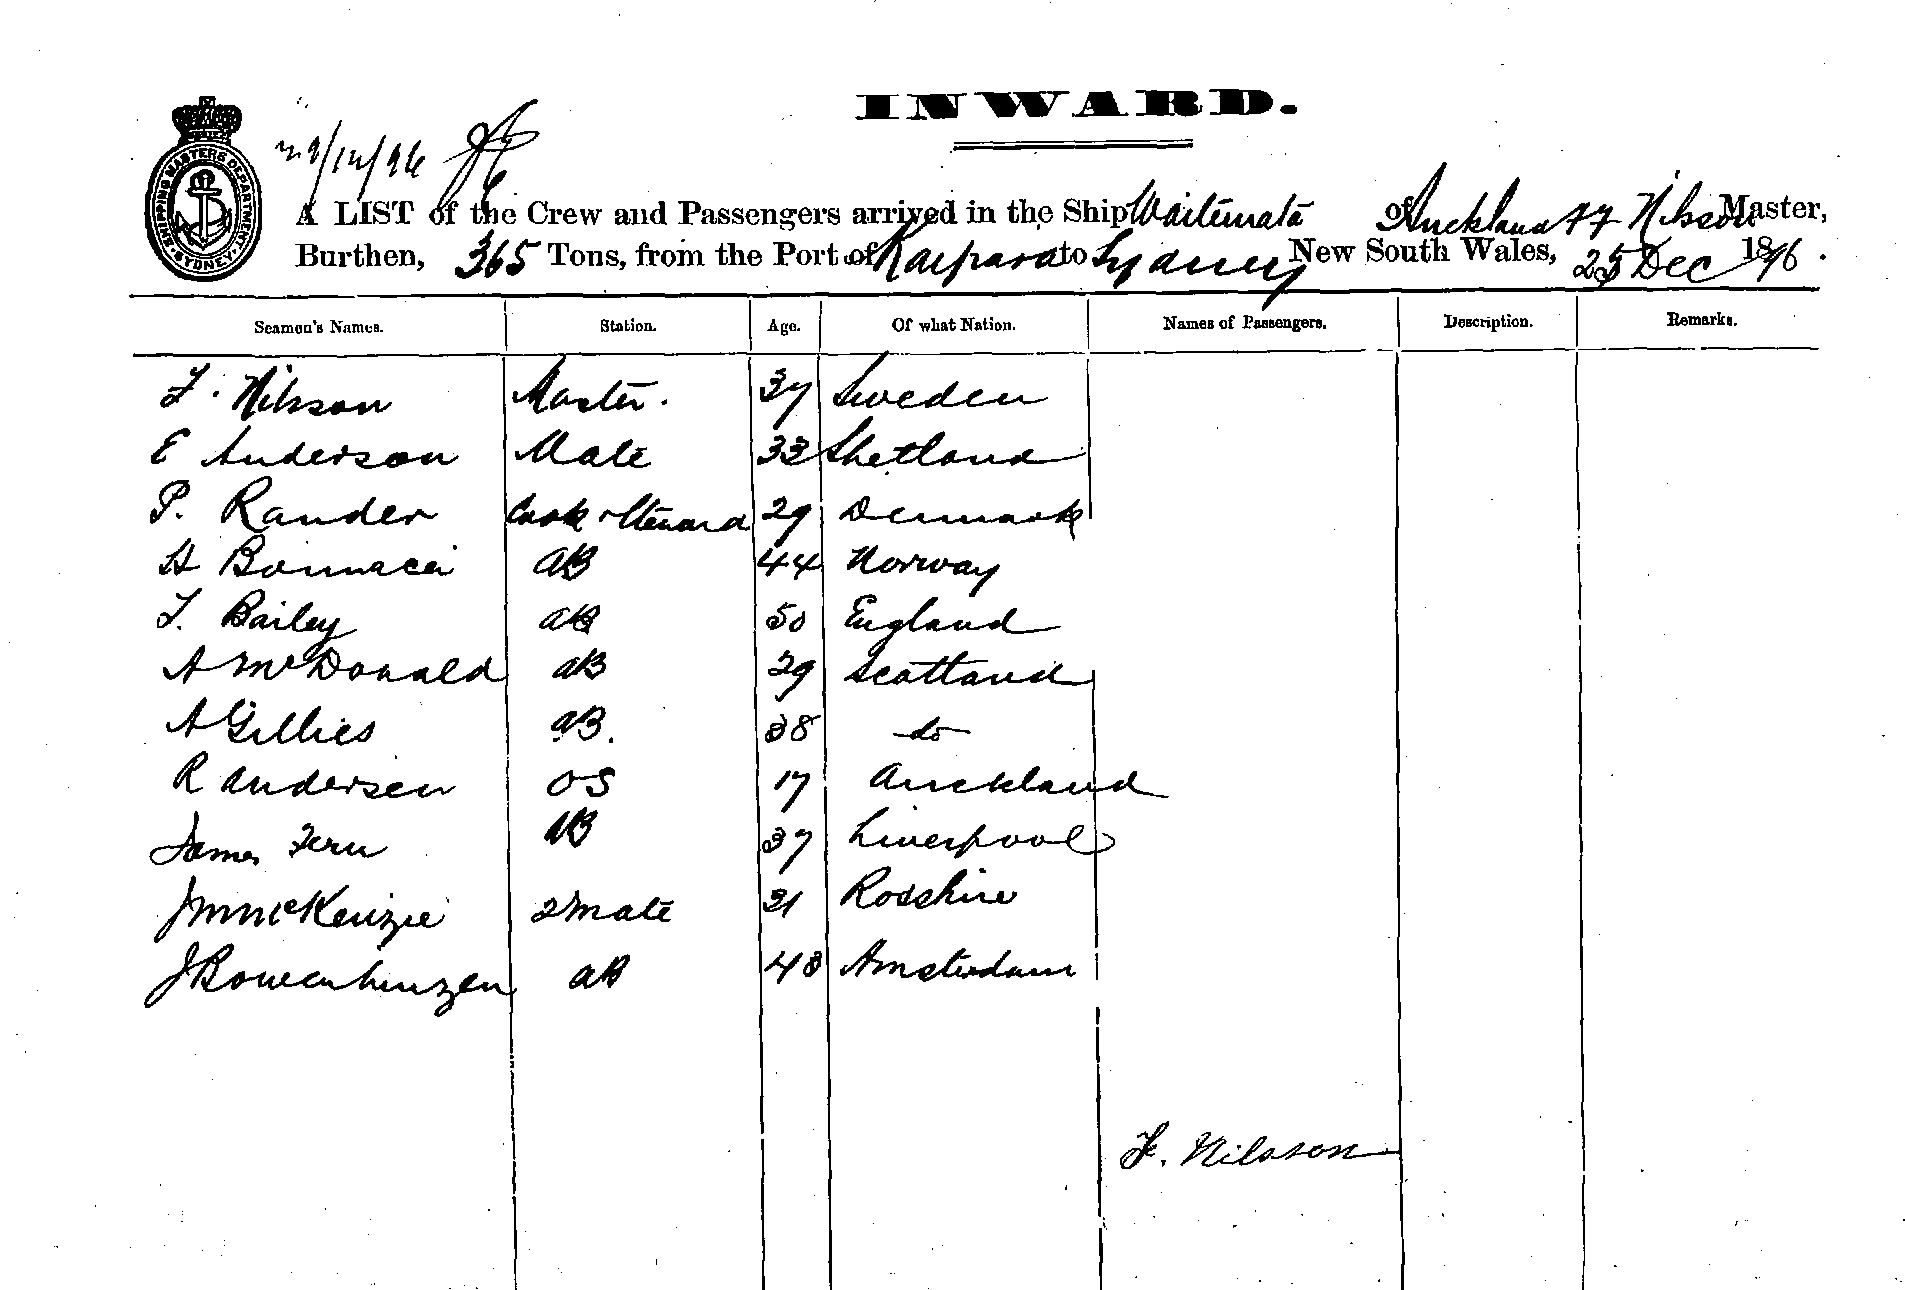 INWARD.
SHIPPING MASTERS DEPARTMENT SYDNEY
29/12/96
A LIST of the Crew and Passengers arrived in the Ship Waitemata of Auckland F Nilsson Master,
Burthen, 365 Tons, from the Port of Kaipara to Sydney New South Wales, 25 Dec 1896.
Seamen's Names. Station. Age. Of what Nation. Names of Passengers. Description. Remarks.
F. Nilsson Master. 37 Sweden
E Anderson Mate 33 Shetland
P. Rander Cook & Steward 29 Denmark
H AB 44 Norway
T. Bailey AB 50 England
A McDonald AB 29 Scotland
A Gillies AB. 38 do
R Andersen OS 17 Auckland
James Fern AB 37 Liverpool
J M McKenzie 2 Mate 31 Rosshire
J AB 48 Amsterdam
F. Nilsson